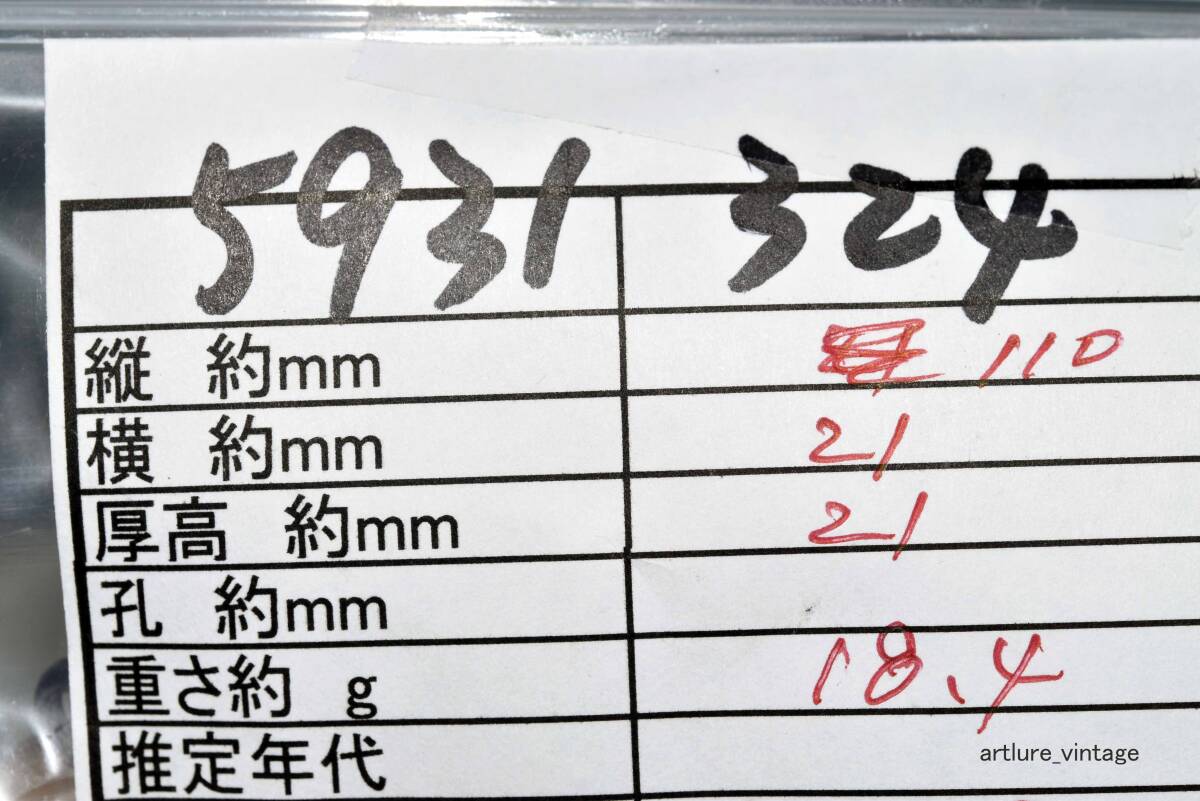 5931 324
縦 約mm 110
横 約mm 21
厚高 約mm 21
孔 約mm
重さ約 g 18.4
推定年代
artlure_vintage